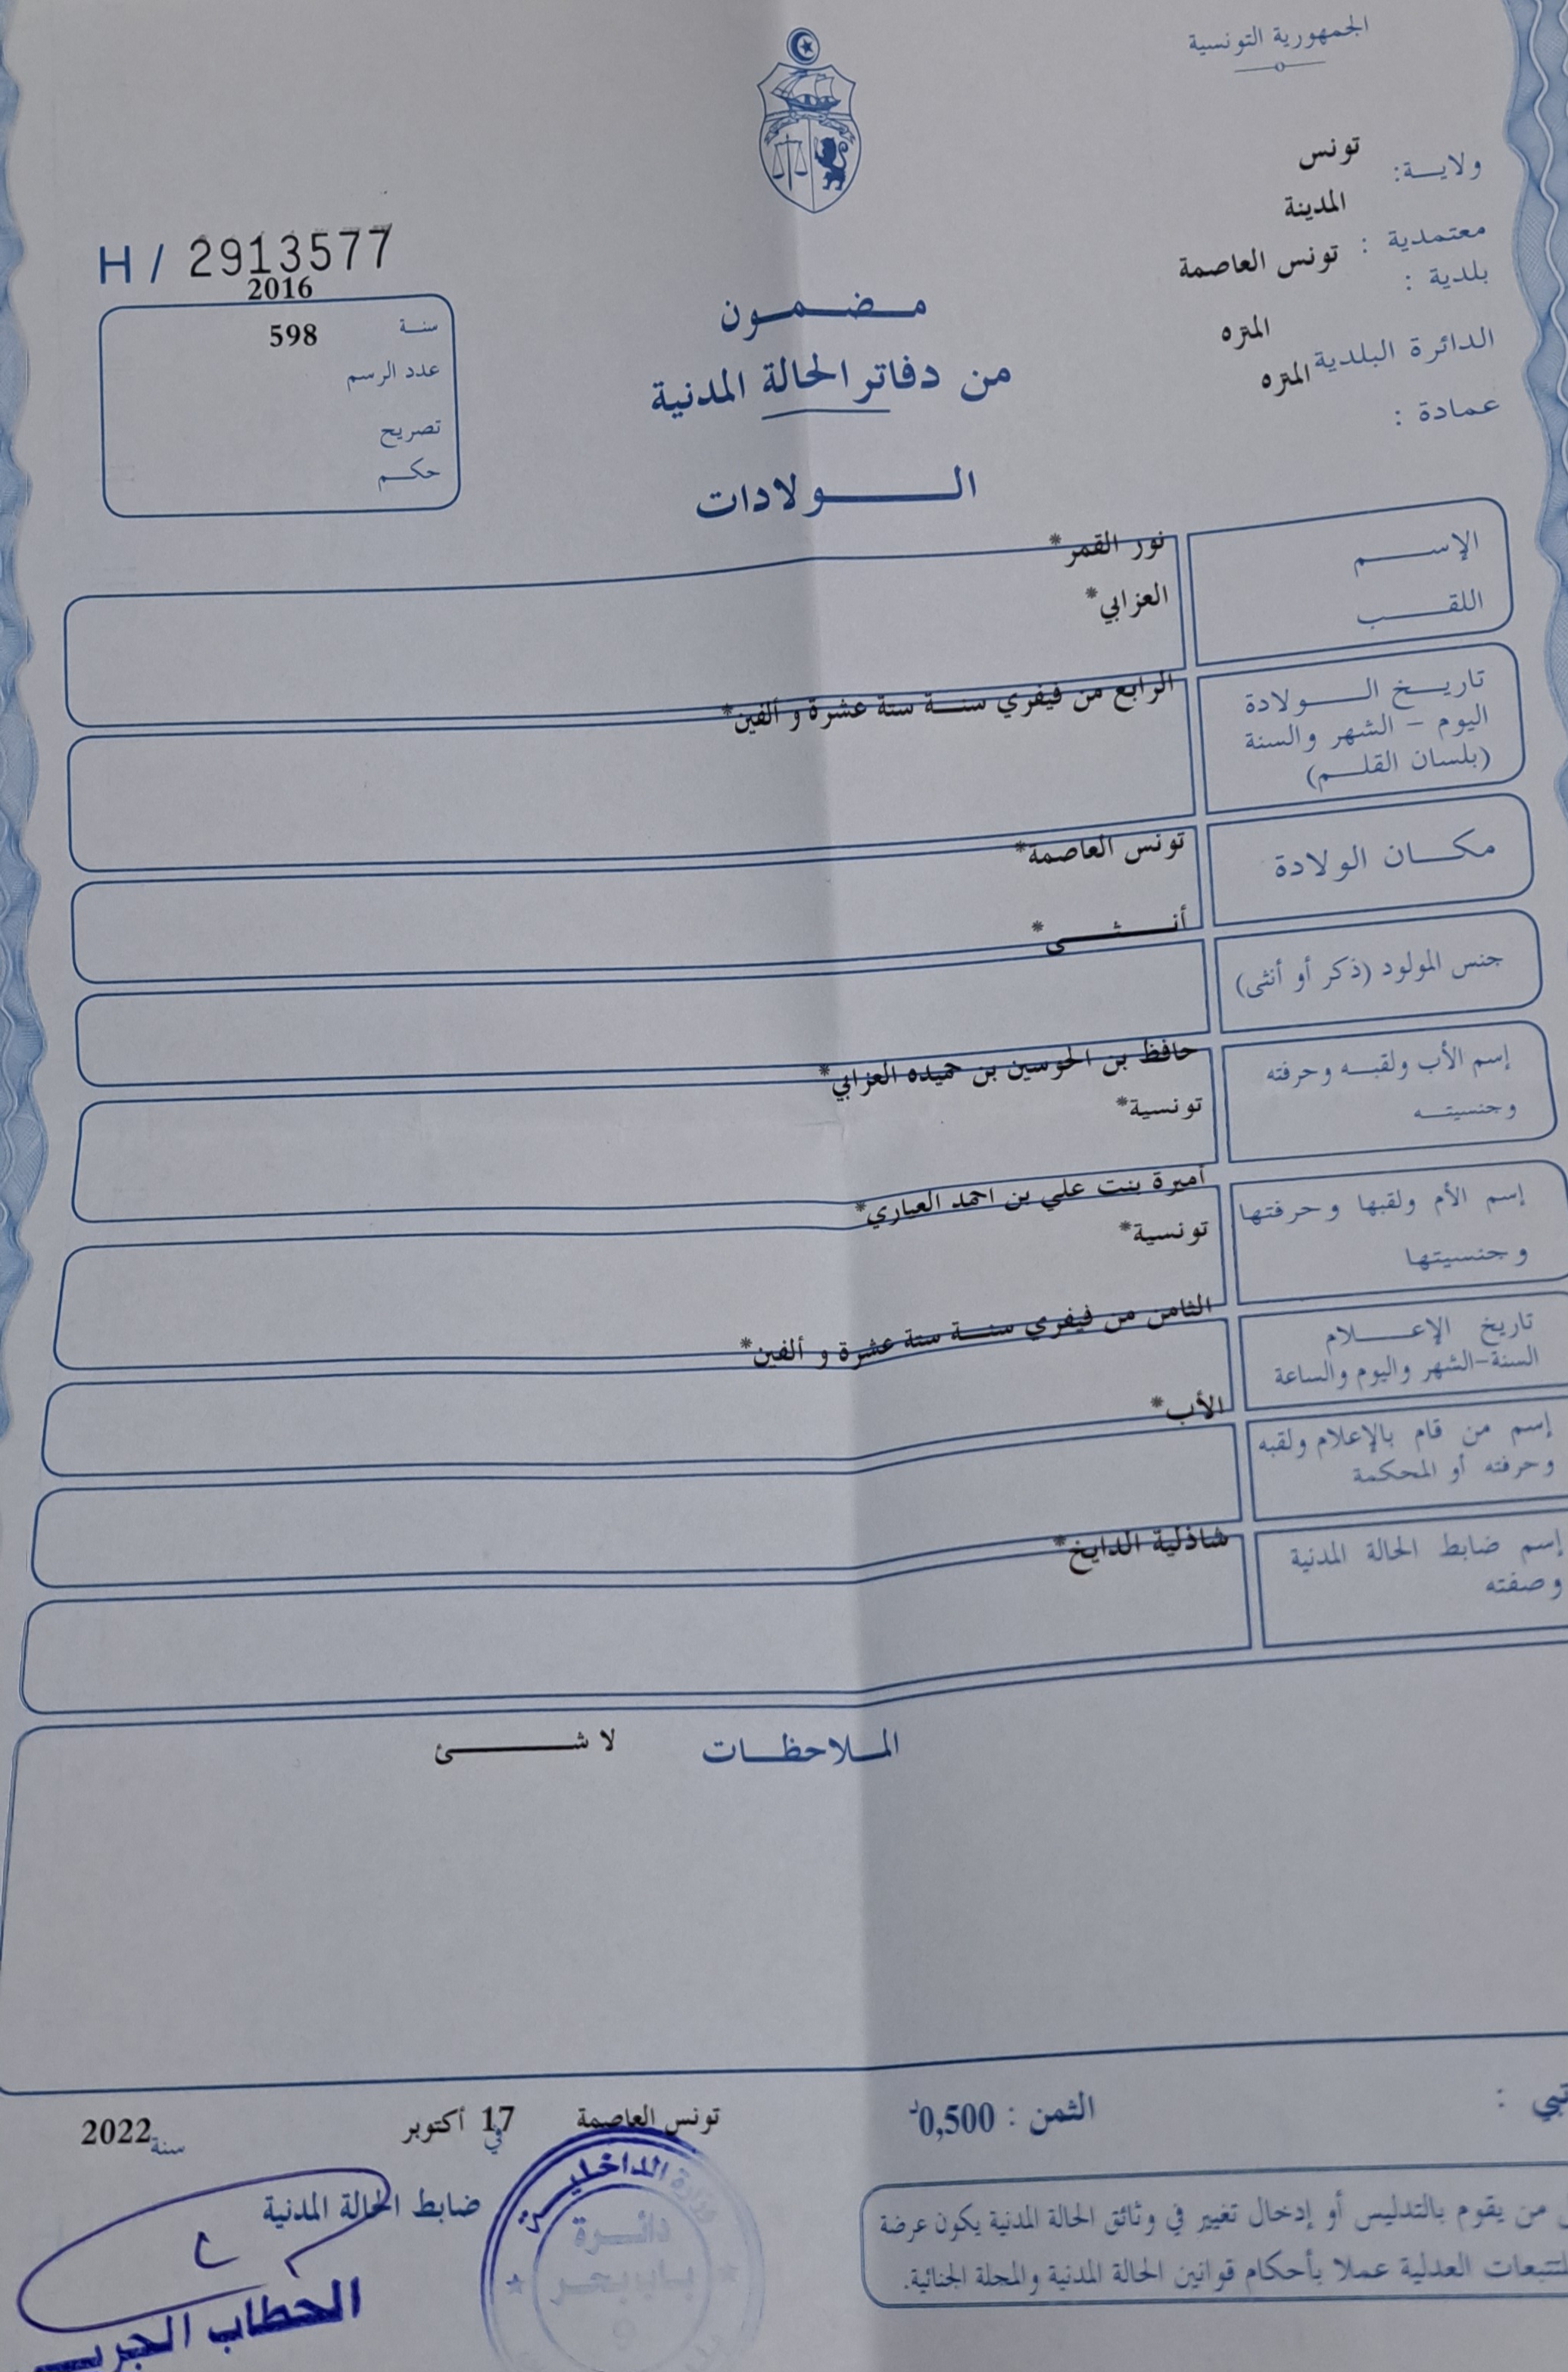 الجمهورية التونسية
ولايــة: تونس
معتمدية : المدينة
بلدية : تونس العاصمة
الدائرة البلدية المتره
عمادة : المتره
H / 2913577
سنـة 2016
عدد الرسم 598
تصريح
حكـم
مـضـمـون
من دفاتر الحالة المدنية
الـــولادات
الإســـم نور القمر*
اللقـــب العزابي*
تاريـخ الـــولادة
اليوم - الشهر والسنة
(بلسان القلـم)
الرابع من فيفري سنــة ستة عشرة و ألفين*
مكــان الولادة تونس العاصمة*
جنس المولود (ذكر أو أنثى) أنــثــى*
إسم الأب ولقبـه وحرفته حافظ بن الحوسين بن حميده العزابي*
وجنسيتـه تونسية*
إسم الأم ولقبها وحرفتها أميرة بنت علي بن احمد العياري*
وجنسيتها تونسية*
تاريخ الإعـــلام
السنة-الشهر واليوم والساعة
الثامن من فيفري سنــة ستة عشرة و ألفين*
إسم من قام بالإعلام ولقبه
وحرفته أو المحكمة
الأب*
إسم ضابط الحالة المدنية
وصفته
شاذلية الدايخ*
المـلاحظـات لا شـــئ
الثمن : 0,500د
تونس العاصمة في 17 أكتوبر سنة 2022
ضابط الحالة المدنية
وزارة الداخليـــة
دائــرة
بـاب بحـر
9
الحطاب
من يقوم بالتدليس أو إدخال تغيير في وثائق الحالة المدنية يكون عرضة
للتتبعات العدلية عملا بأحكام قوانين الحالة المدنية والمجلة الجنائية.